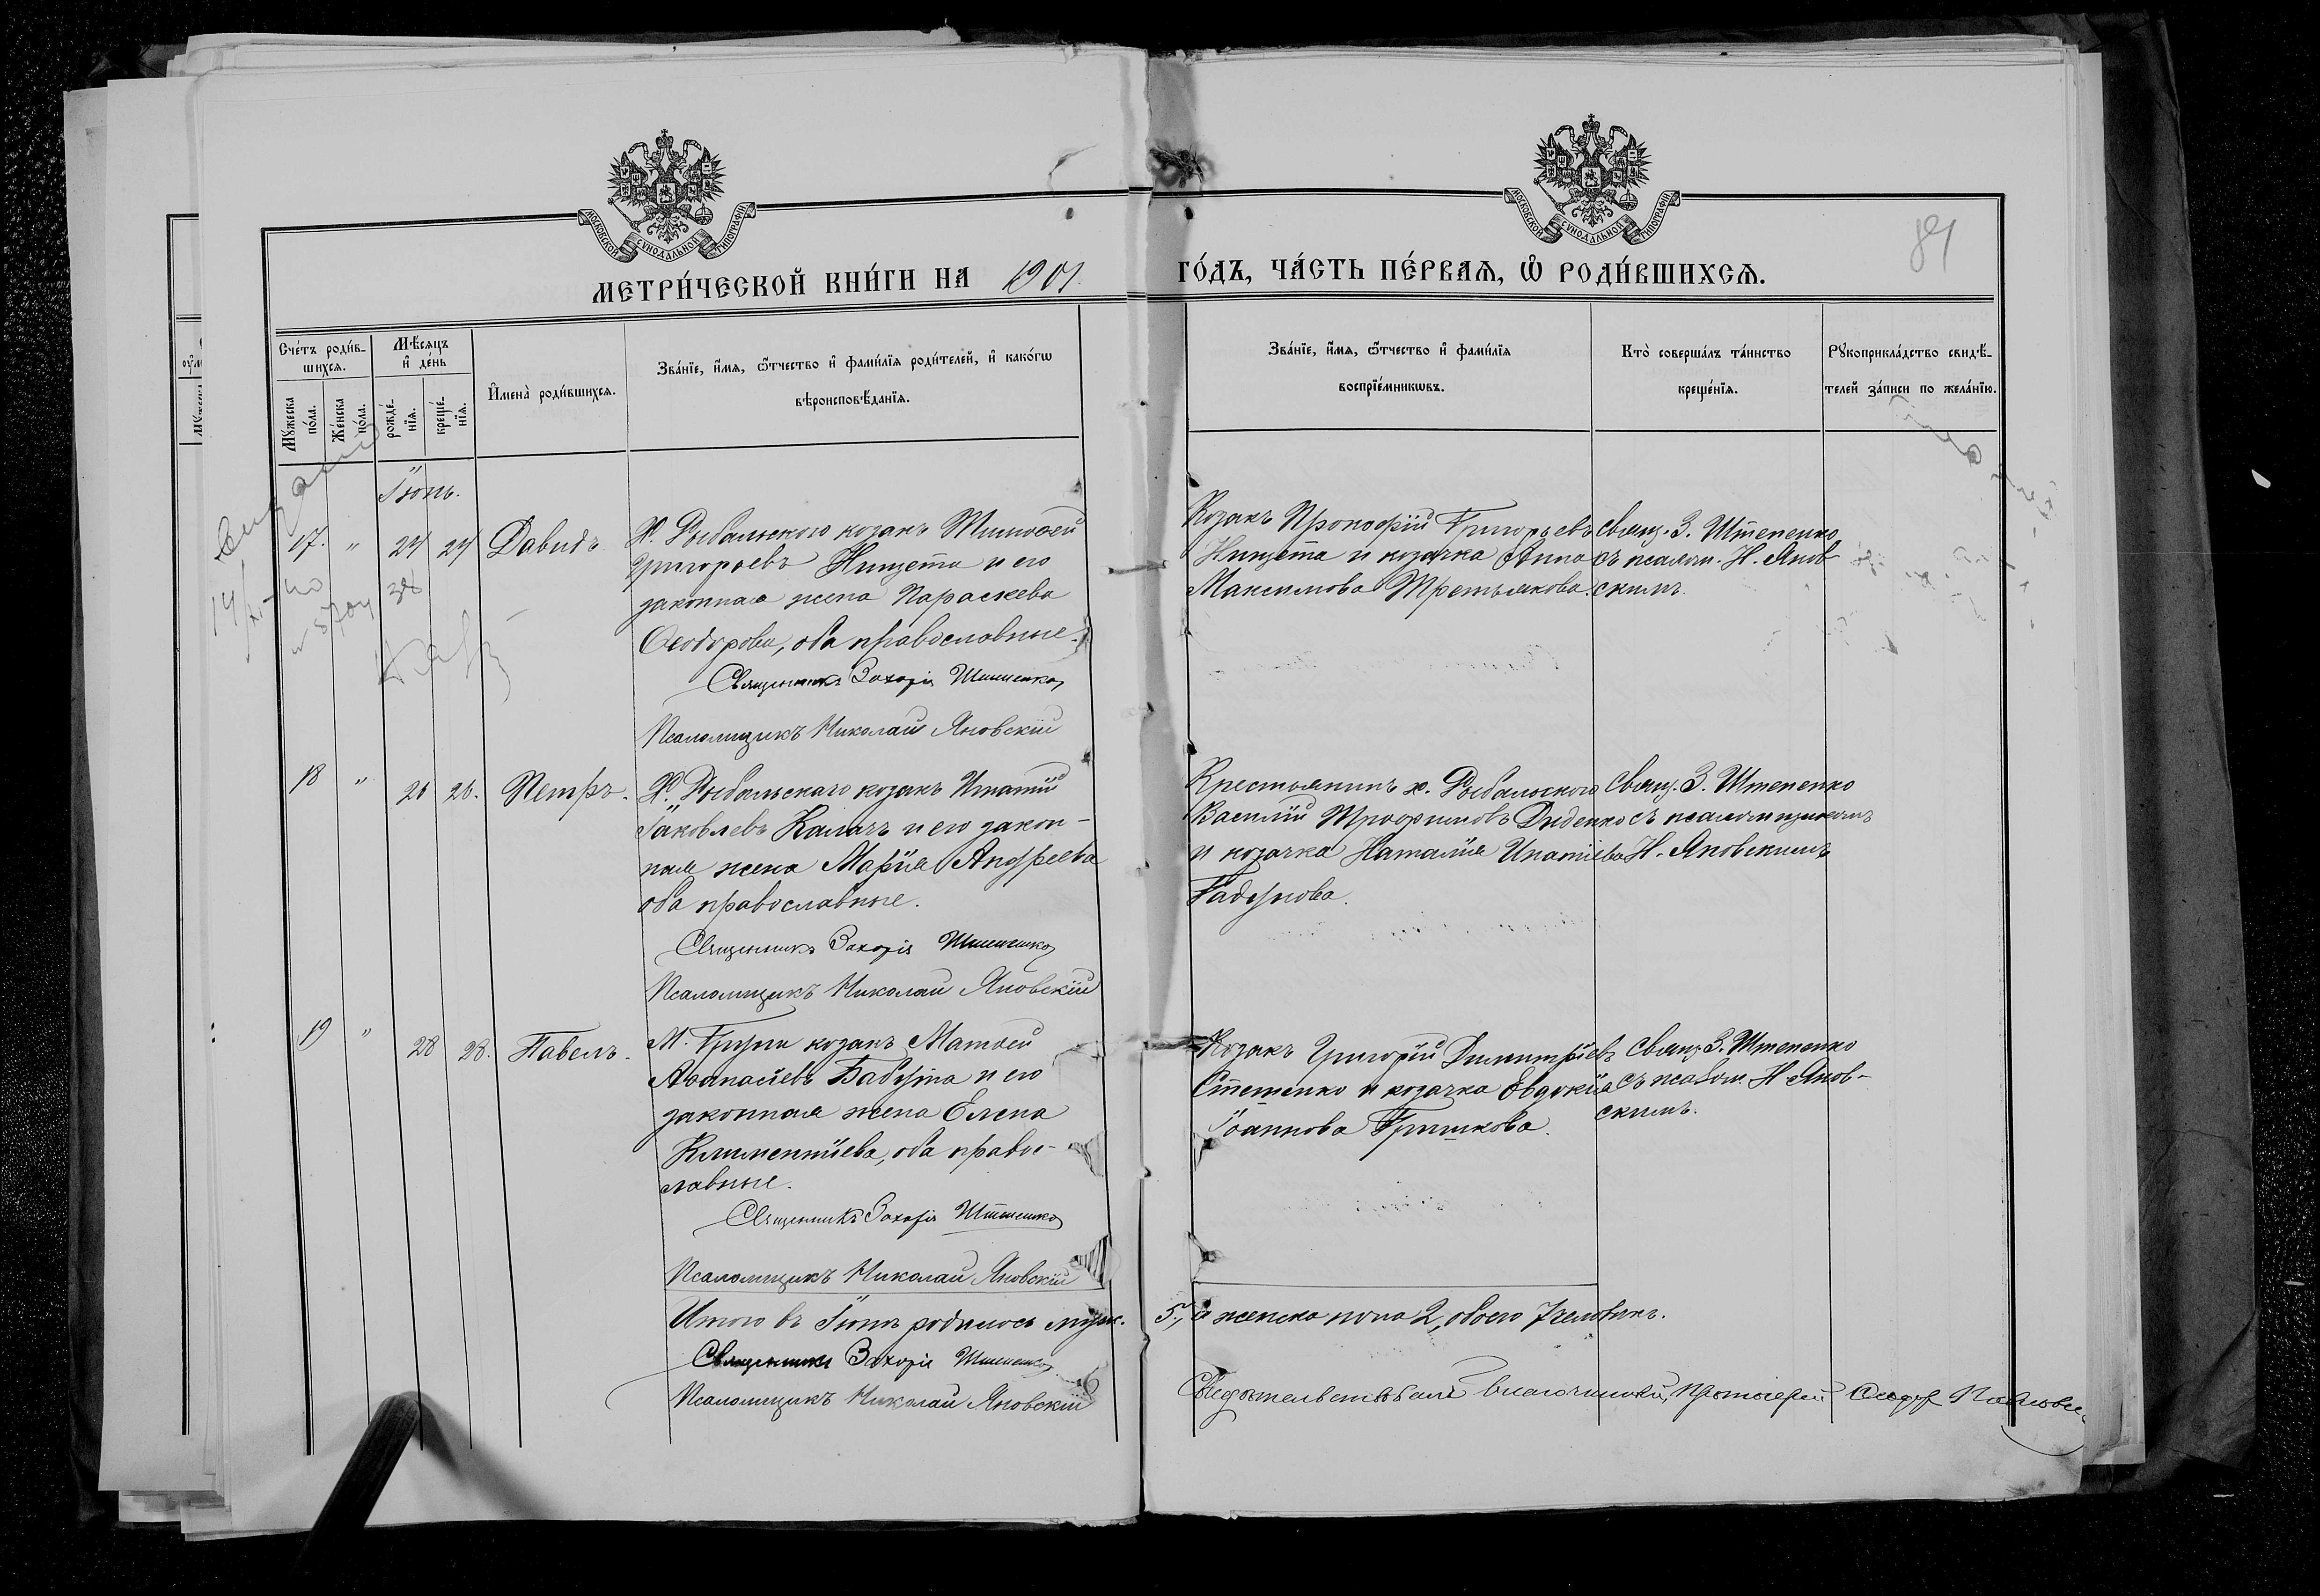 МОСКОВСКОЙ СѴНОДАЛЬНОЙ ТИПОГРАФІИ
МОСКОВСКОЙ СѴНОДАЛЬНОЙ ТИПОГРАФІИ
МЕТРИ́ЧЕСКОЙ КНИ́ГИ НА 1901
ГО́ДЪ, ЧА́СТЬ ПЕ́РВАЯ, Ѽ РОДИ́ВШИХСѦ.
Сче́тъ роди́в-
шихсѧ.
Мѣ́сяцъ
и҆ де́нь
Мꙋ́жеска
по́ла.
Же́нска
по́ла.
рожде́-
нїѧ.
креще́-
нїѧ.
И҆мена̀ роди́вшихсѧ.
Зва́нїе, и҆́мѧ, ѻ҆́тчество и҆ фами́лїѧ роди́телей, и҆ како́гѡ
вѣроисповѣ́данїѧ.
Зва́нїе, и҆́мѧ, ѻ҆́тчество и҆ фами́лїѧ
воспрїе́мникѡвъ.
Кто̀ соверша́лъ та́инство
креще́нїѧ.
Рꙋкоприкла́дство свидѣ́-
телей за́писи по жела́нїю.
Іюнь.
17. " 24 24 Давидъ
Х. Рыбальского козакъ Тимофей
Григорьевъ Нищета и его
законная жена Параскева
Ѳеодорова, оба православные.
Священникъ Захарія Штепенко
Псаломщикъ Николай Яновскій
Козакъ Прокофій Григорьевъ
Нищета и козачка Анна
Максимова Третьякова.
Свящ. З. Штепенко
съ псаломщ. Н. Янов-
скимъ.
18 " 26 26. Петръ.
Х. Рыбальскаго козакъ Ипатій
Іаковлевъ Калачъ и его закон-
ная жена Марія Андреева
оба православные.
Священникъ Захарія Штепенко
Псаломщикъ Николай Яновскій
Крестьянинъ х. Рыбальского
Василій Трофимовъ Диденко
и козачка Наталія Ипатіева
Гадунова.
Свящ. З. Штепенко
съ псаломщикомъ
Н. Яновскимъ
19 " 28 28. Павелъ.
М. Груни козакъ Матѳей
Аѳанасіевъ Бабута и его
законная жена Елена
Климентіева, оба право-
славные.
Священникъ Захарія Штепенко
Псаломщикъ Николай Яновскій
Козакъ Григорій Димитріевъ
Стеценко и козачка Евдокія
Іоаннова Гришкова.
Свящ. З. Штепенко
съ псалом. Н Янов-
скимъ.
Итого въ Іюнѣ родилось муж. 5, а женска пола 2, обоего 7 человѣкъ.
Священникъ Захарія Штепенко
Псаломщикъ Николай Яновскій
Свидѣтельствовалъ благочинный, Протоіерей